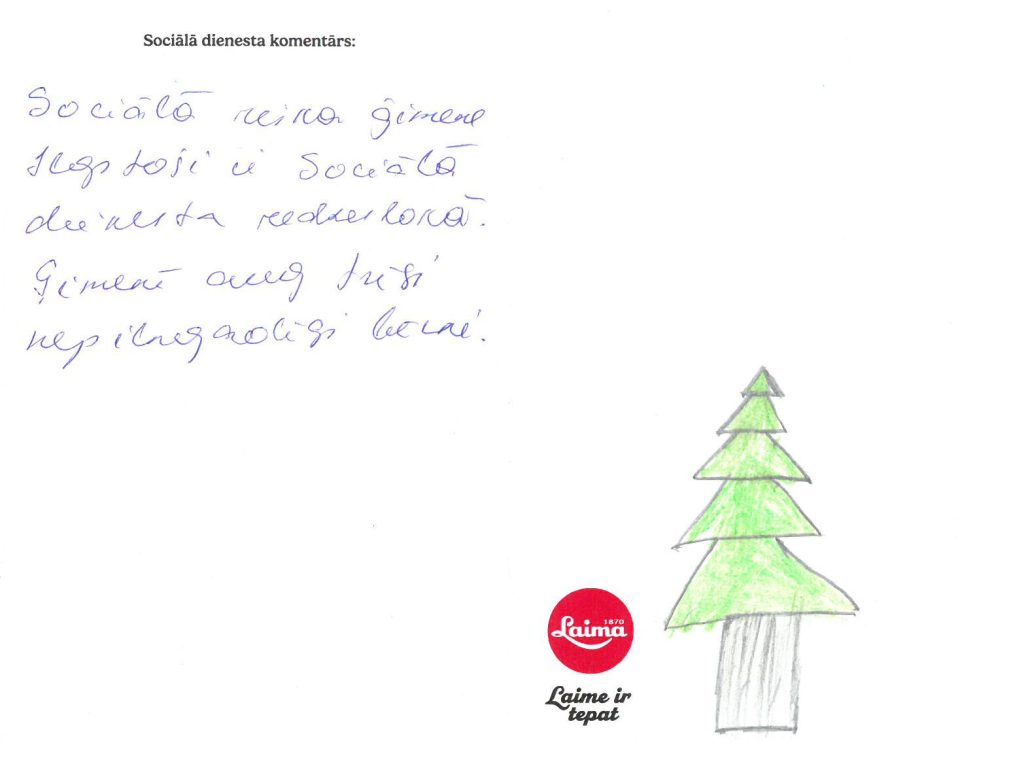 Sociālā dienesta komentārs:
Sociālā riska ģimene
Ilgstoši ir Sociālā
dienesta redzeslokā.
Ģimenē aug trīs
nepilngadīgi bērni.
1870
Laima
Laime ir
tepat